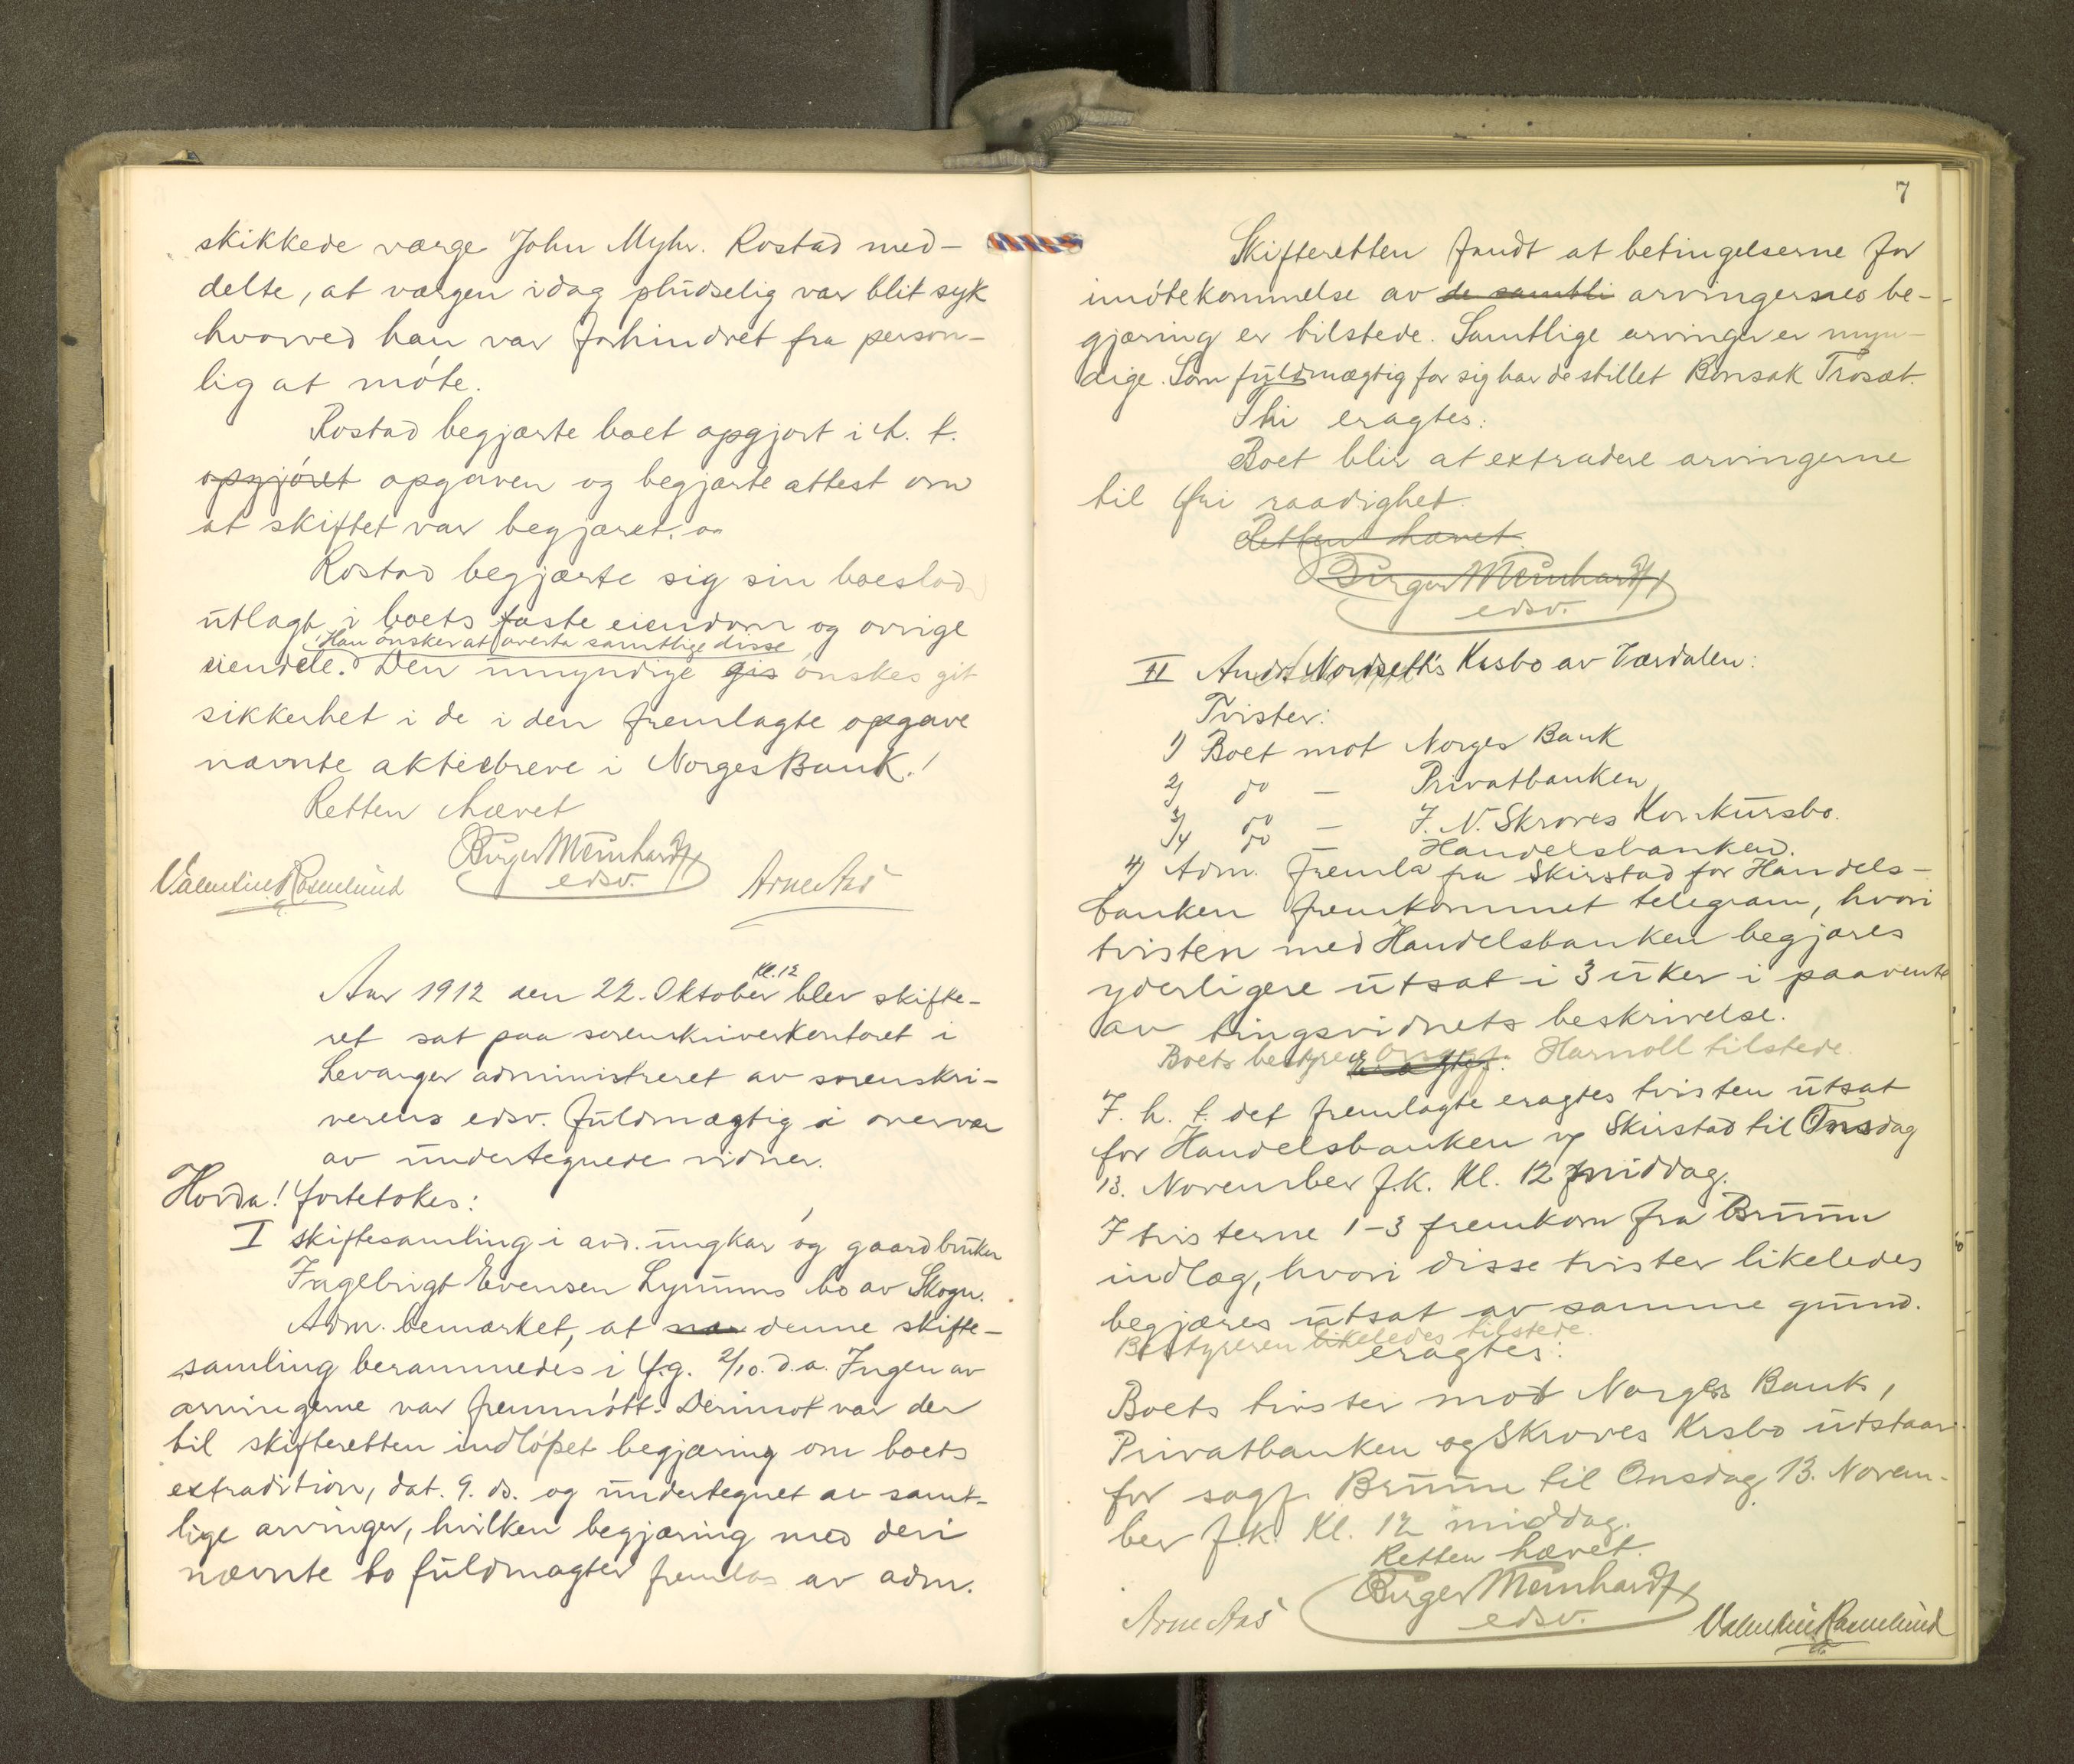 skikkede værge John Myhr. Rostad med-
delte, at værgen idag pludselig var blit syk
hvorved han var forhindret fra person-
lig at møte.
Rostad begjærte boet opgjort i h. t.
opgjøret opgaven og begjærte attest om
at skiftet var begjæret.
Rostad begjærte sig sin boeslod
utlagt i boets faste eiendom og øvrige
Han ønsker at overta samtlige disse
eiendele. Den umyndige gis ønskes git
sikkerhet i de i den fremlagte opgave
nævnte aktiebreve i Norges Bank.!
Retten hævet
Birger Meinhardt
edsv.
Valentin Rosenlund
Arne Aas
Aar 1912 den 22. Oktober kl. 12 blev skifte-
ret sat paa sorenskriverkontoret i
Levanger administreret av sorenskri-
verens edsv. fuldmægtig i overvær
av undertegnede vidner.
Hvorda! foretokes:
I skiftesamling i avd. ungkar og gaardbruker
Ingebrigt Evensen Lynums bo av Skogn.
Adm. bemærket, at denne skifte-
samling berammedes i f.g. 2/10. d.a. Ingen av
arvingerne var fremmøtt. Derimot var der
til skifteretten indløpet begjæring om boets
extradition, dat. 9. ds. og undertegnet av samt-
lige arvinger, hvilken begjæring med deri
nævnte bo fuldmagter fremlas av adm.
7
Skifteretten fandt at betingelserne for
imøtekommelse av de samtli arvingernes be-
gjæring er tilstede. Samtlige arvinger er myn-
dige. Som fuldmægtig for sig har de stillet Bonsak Trøsæt.
Thi eragtes:
Boet blir at extradere arvingerne
til fri raadighet.
Retten hævet.
Birger Meinhardt
edsv.
II Andr. Nordseth's Krsbo av Værdalen:
Tvister:
1) Boet mot Norges Bank
2) do — Privatbanken
3) do — J. N. Skroves Konkursbo.
4 do Handelsbanken.
4) Adm. fremla fra Skirstad for Handels-
banken fremkommet telegram, hvori
tvisten med Handelsbanken begjæres
yderligere utsat i 3 uker i paavente
av tingsvidnets beskrivelse.
Boets bestyrer Harnoll tilstede.
eragtes:
I. h. t. det fremlagte eragtes tvisten utsat
for Handelsbanken v Skirstad til Onsdag
13. November f.k. Kl. 12 middag.
I tvisterne 1-3 fremkom fra Bruun
indlæg, hvori disse tvister likeledes
begjæres utsat av samme grund.
Bestyreren likeledes tilstede.
eragtes:
Boets tvister mod Norges Bank,
Privatbanken og Skroves Krsbo utstaar
for sagf. Bruun til Onsdag 13. Novem-
ber f.k. Kl. 12 middag.
Retten hævet.
Birger Meinhardt
edsv.
Arne Aas
Valentin Rosenlund